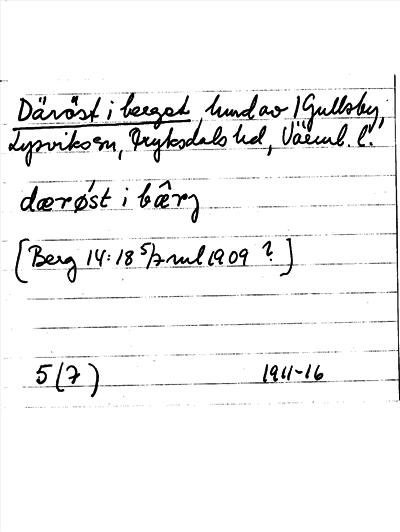 Däröst i berget, hmd av 1 Gullsby,
Lysviks sn, Fryksdals hd, Värml. l.
dærǿst i bæ̂rg
[Berg 14:18 5/7 mtl 1909 ?]
5(7) 1911-16